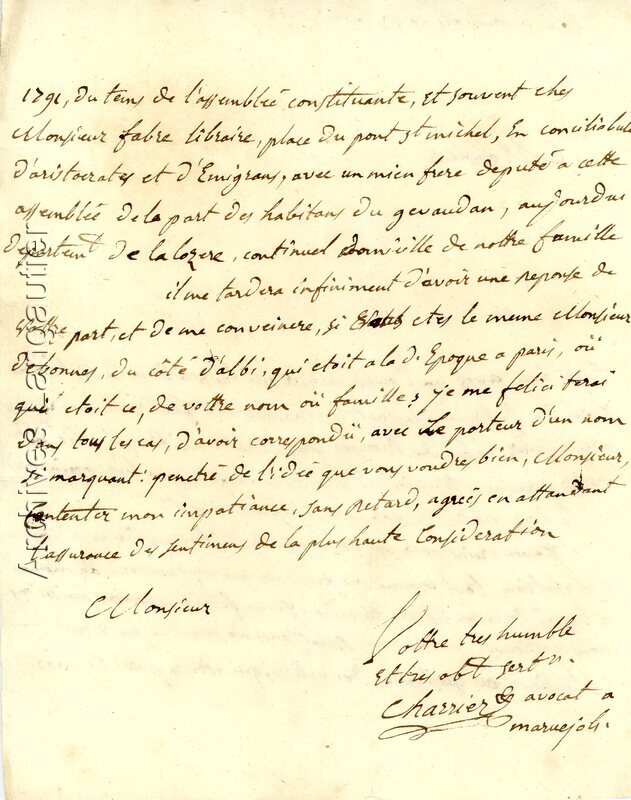 1791, du tems de l'assemblée constituante, et souvent ches
Monsieur fabre libraire, place du pont st michel, En conciliabule
d'aristocrates et d'Emigrans, avec un mien frere deputé a cette
assemblée de la part des habitans du gevaudan, aujourdui
departemt. de la lozere, continuel domicille de nottre famille
il me tardera infiniment d'avoir une reponse de
vottre part, et de me conveincre, si etes le meme Monsieur
debonnes, du côté d'albi, qui etoit a la d. Epoque a paris, où
qui etoit ce, de vottre nom où famille; je me feliciterai
dans tous les cas, d'avoir correspondü, avec Le porteur d'un nom
si marquant: penetré de l'idée que vous voudres bien, Monsieur,
contenter mon inpatiance, sans Retard, agreés en attandant
l'assurance des sentimens de la plus haute Consideration
Monsieur
Vottre tres humble
Et tres obt. sert n.
Charrier avocat a
maruejols.
Archives Langautier